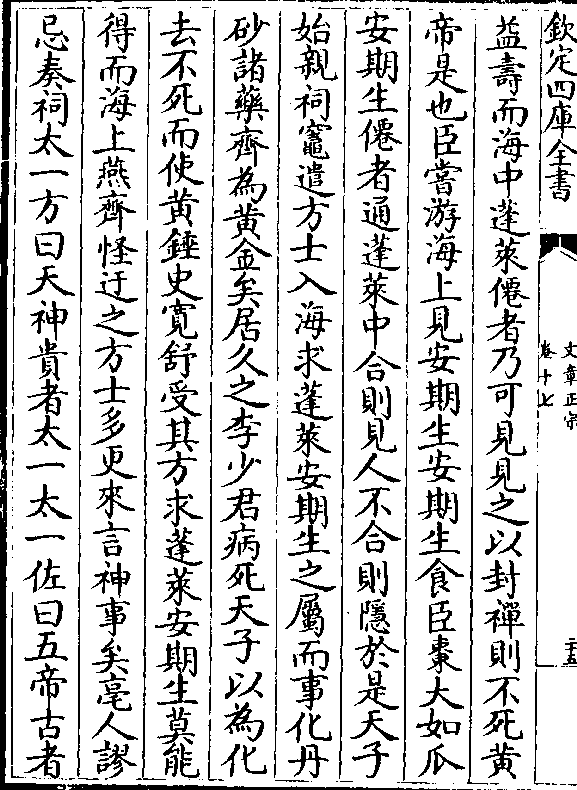 欽定四庫全書
文章正宗
卷十七
二十五
益壽而海中蓬萊僊者乃可見見之以封禪則不死黄
帝是也臣嘗游海上見安期生安期生食臣棗大如瓜
安期生僊者通蓬萊中合則見人不合則隱於是天子
始親祠竈遣方士入海求蓬萊安期生之屬而事化丹
砂諸藥齊為黄金矣居久之李少君病死天子以為化
去不死而使黄錘史寛舒受其方求蓬萊安期生莫能
得而海上燕齊怪迂之方士多更來言神事矣亳人謬
忌奏祠太一方曰天神貴者太一太一佐曰五帝古者